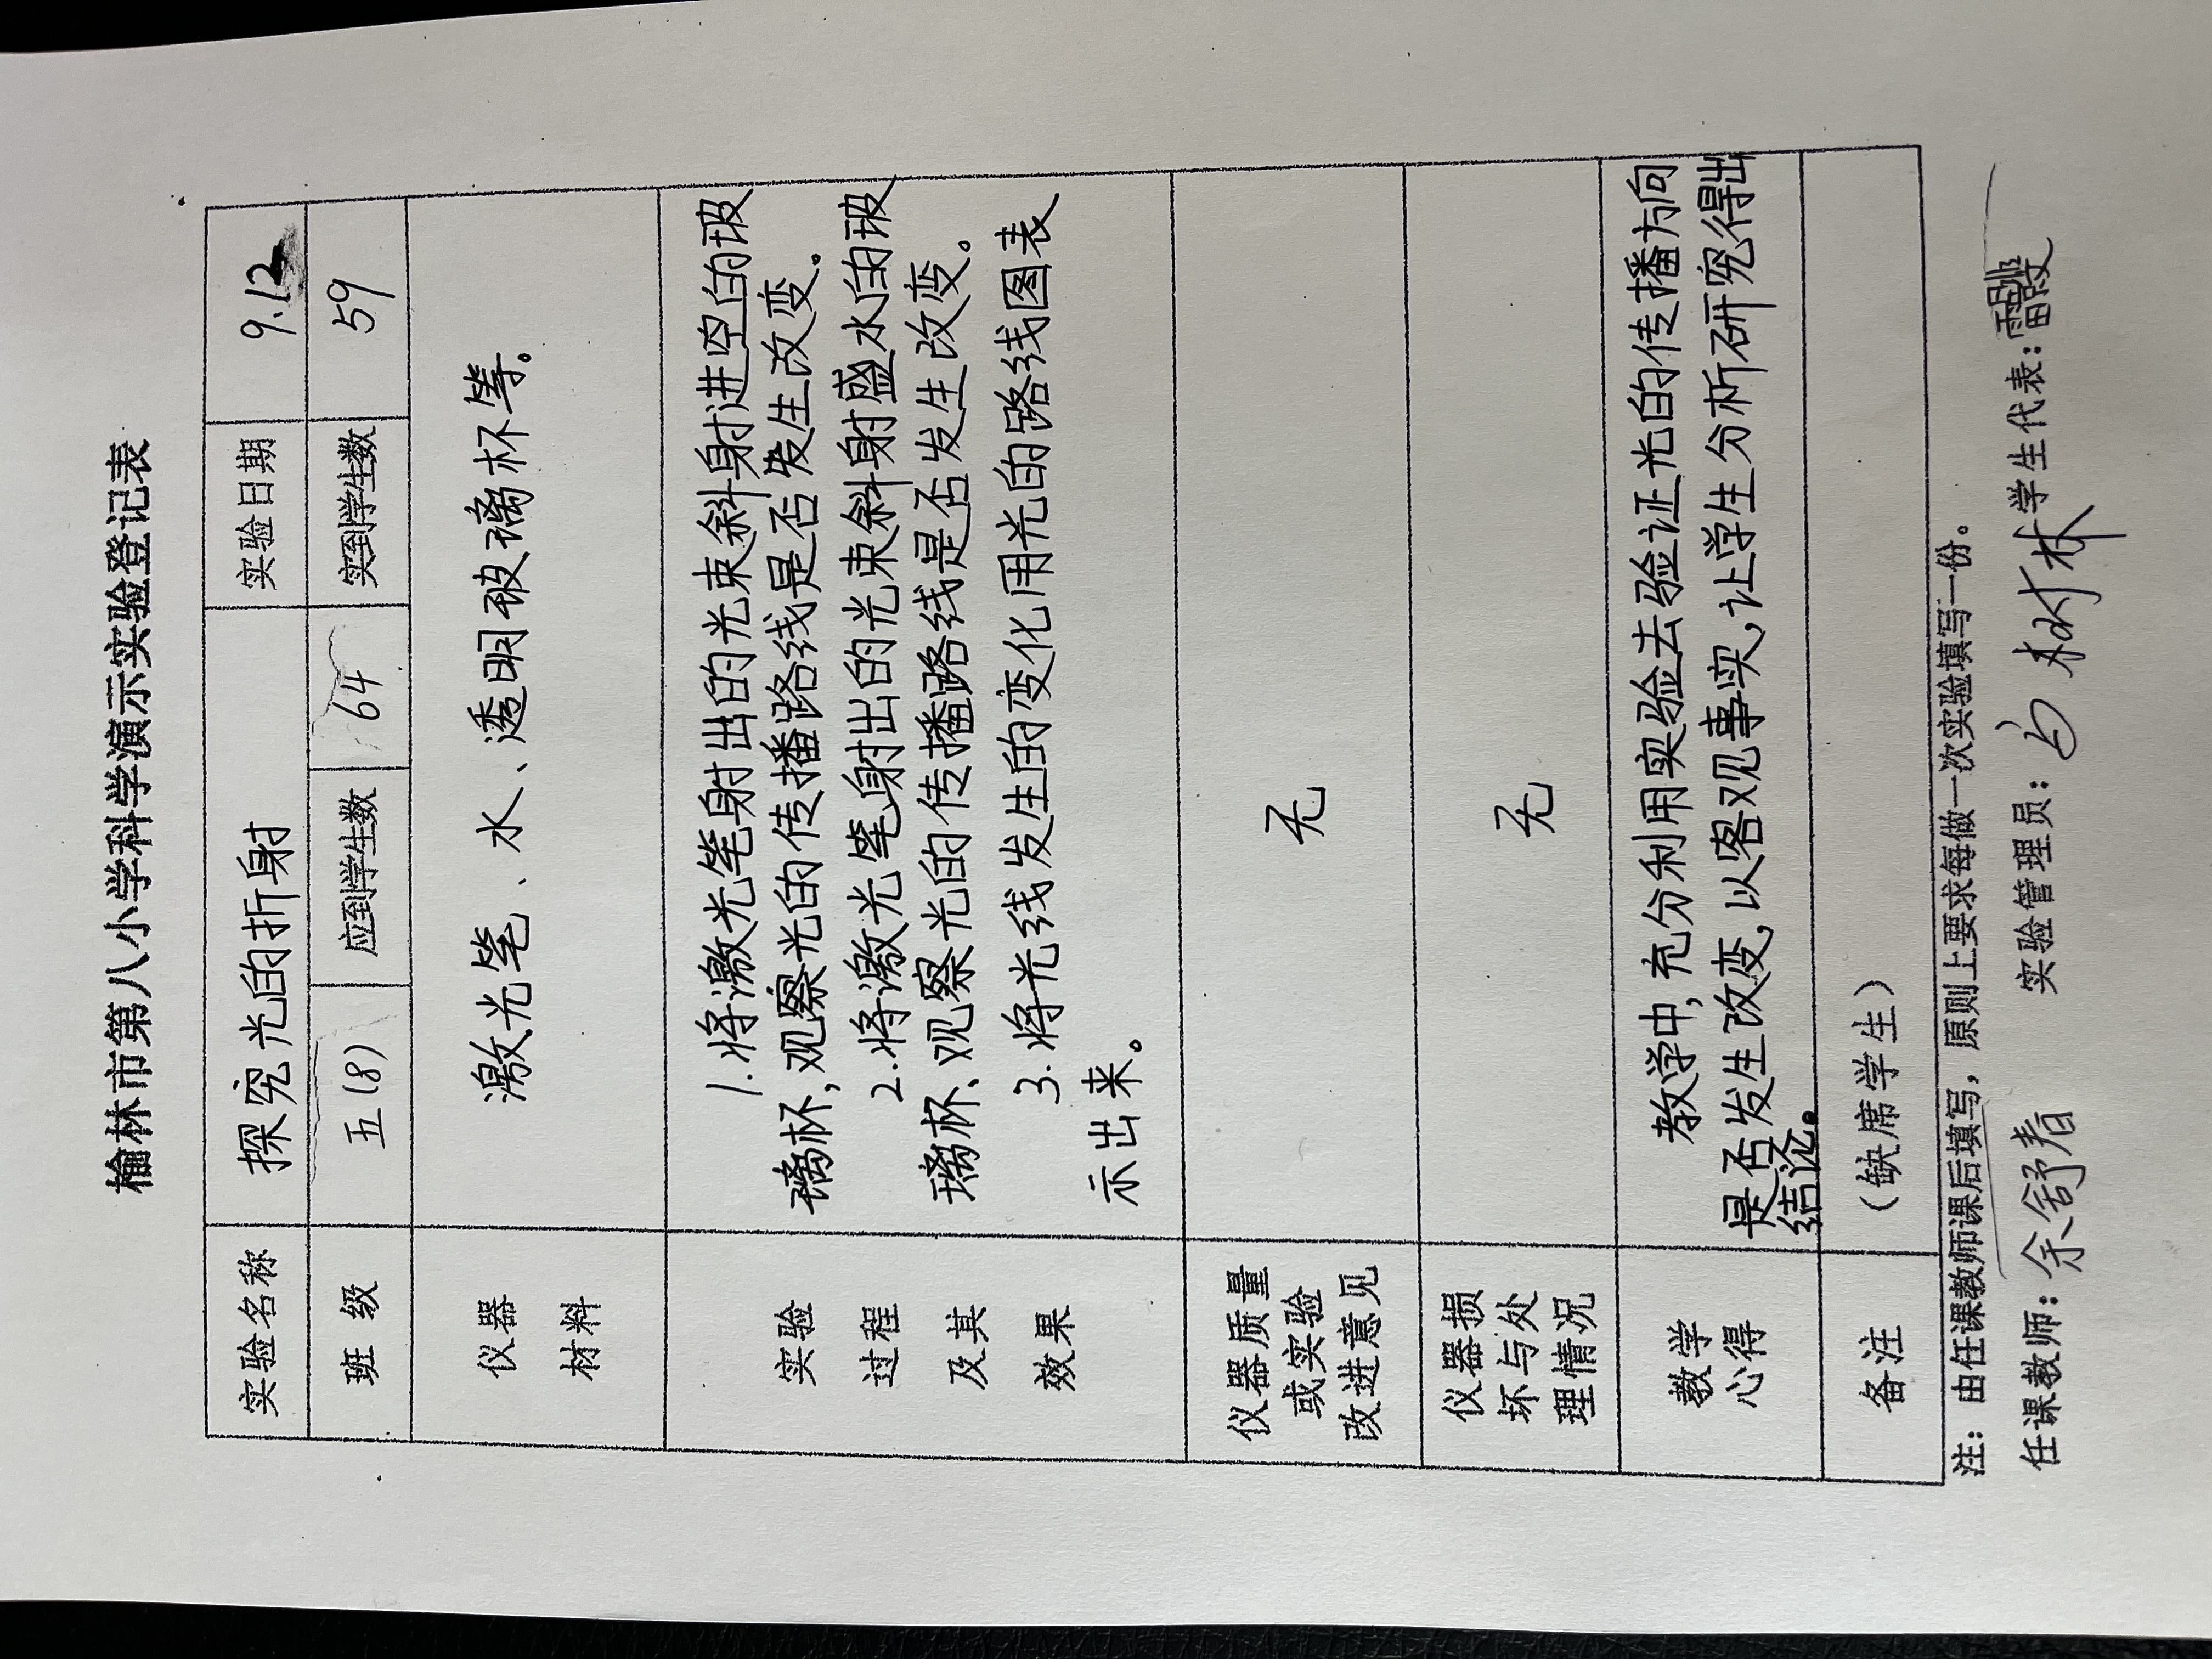 榆林市第八小学科学演示实验登记表
实验名称 探究光的折射 实验日期 9.12
班 级 五(8) 应到学生数 64 实到学生数 59
仪器
材料
激光笔、水、透明玻璃杯等。
实验
过程
及其
效果
1.将激光笔射出的光束斜射进空的玻
璃杯,观察光的传播路线是否发生改变。
2.将激光笔射出的光束斜射盛水的玻
璃杯、观察光的传播路线是否发生改变。
3.将光线发生的变化用光的路线图表
示出来。
仪器质量
或实验
改进意见
无
仪器损
坏与处
理情况
无
教学
心得
教学中,充分利用实验去验证光的传播方向
是否发生改变,以客观事实,让学生分析研究得出
结论。
备注 (缺席学生)
注:由任课教师课后填写,原则上要求每做一次实验填写一份。
任课教师:余舒春 实验管理员: 树林 学生代表: